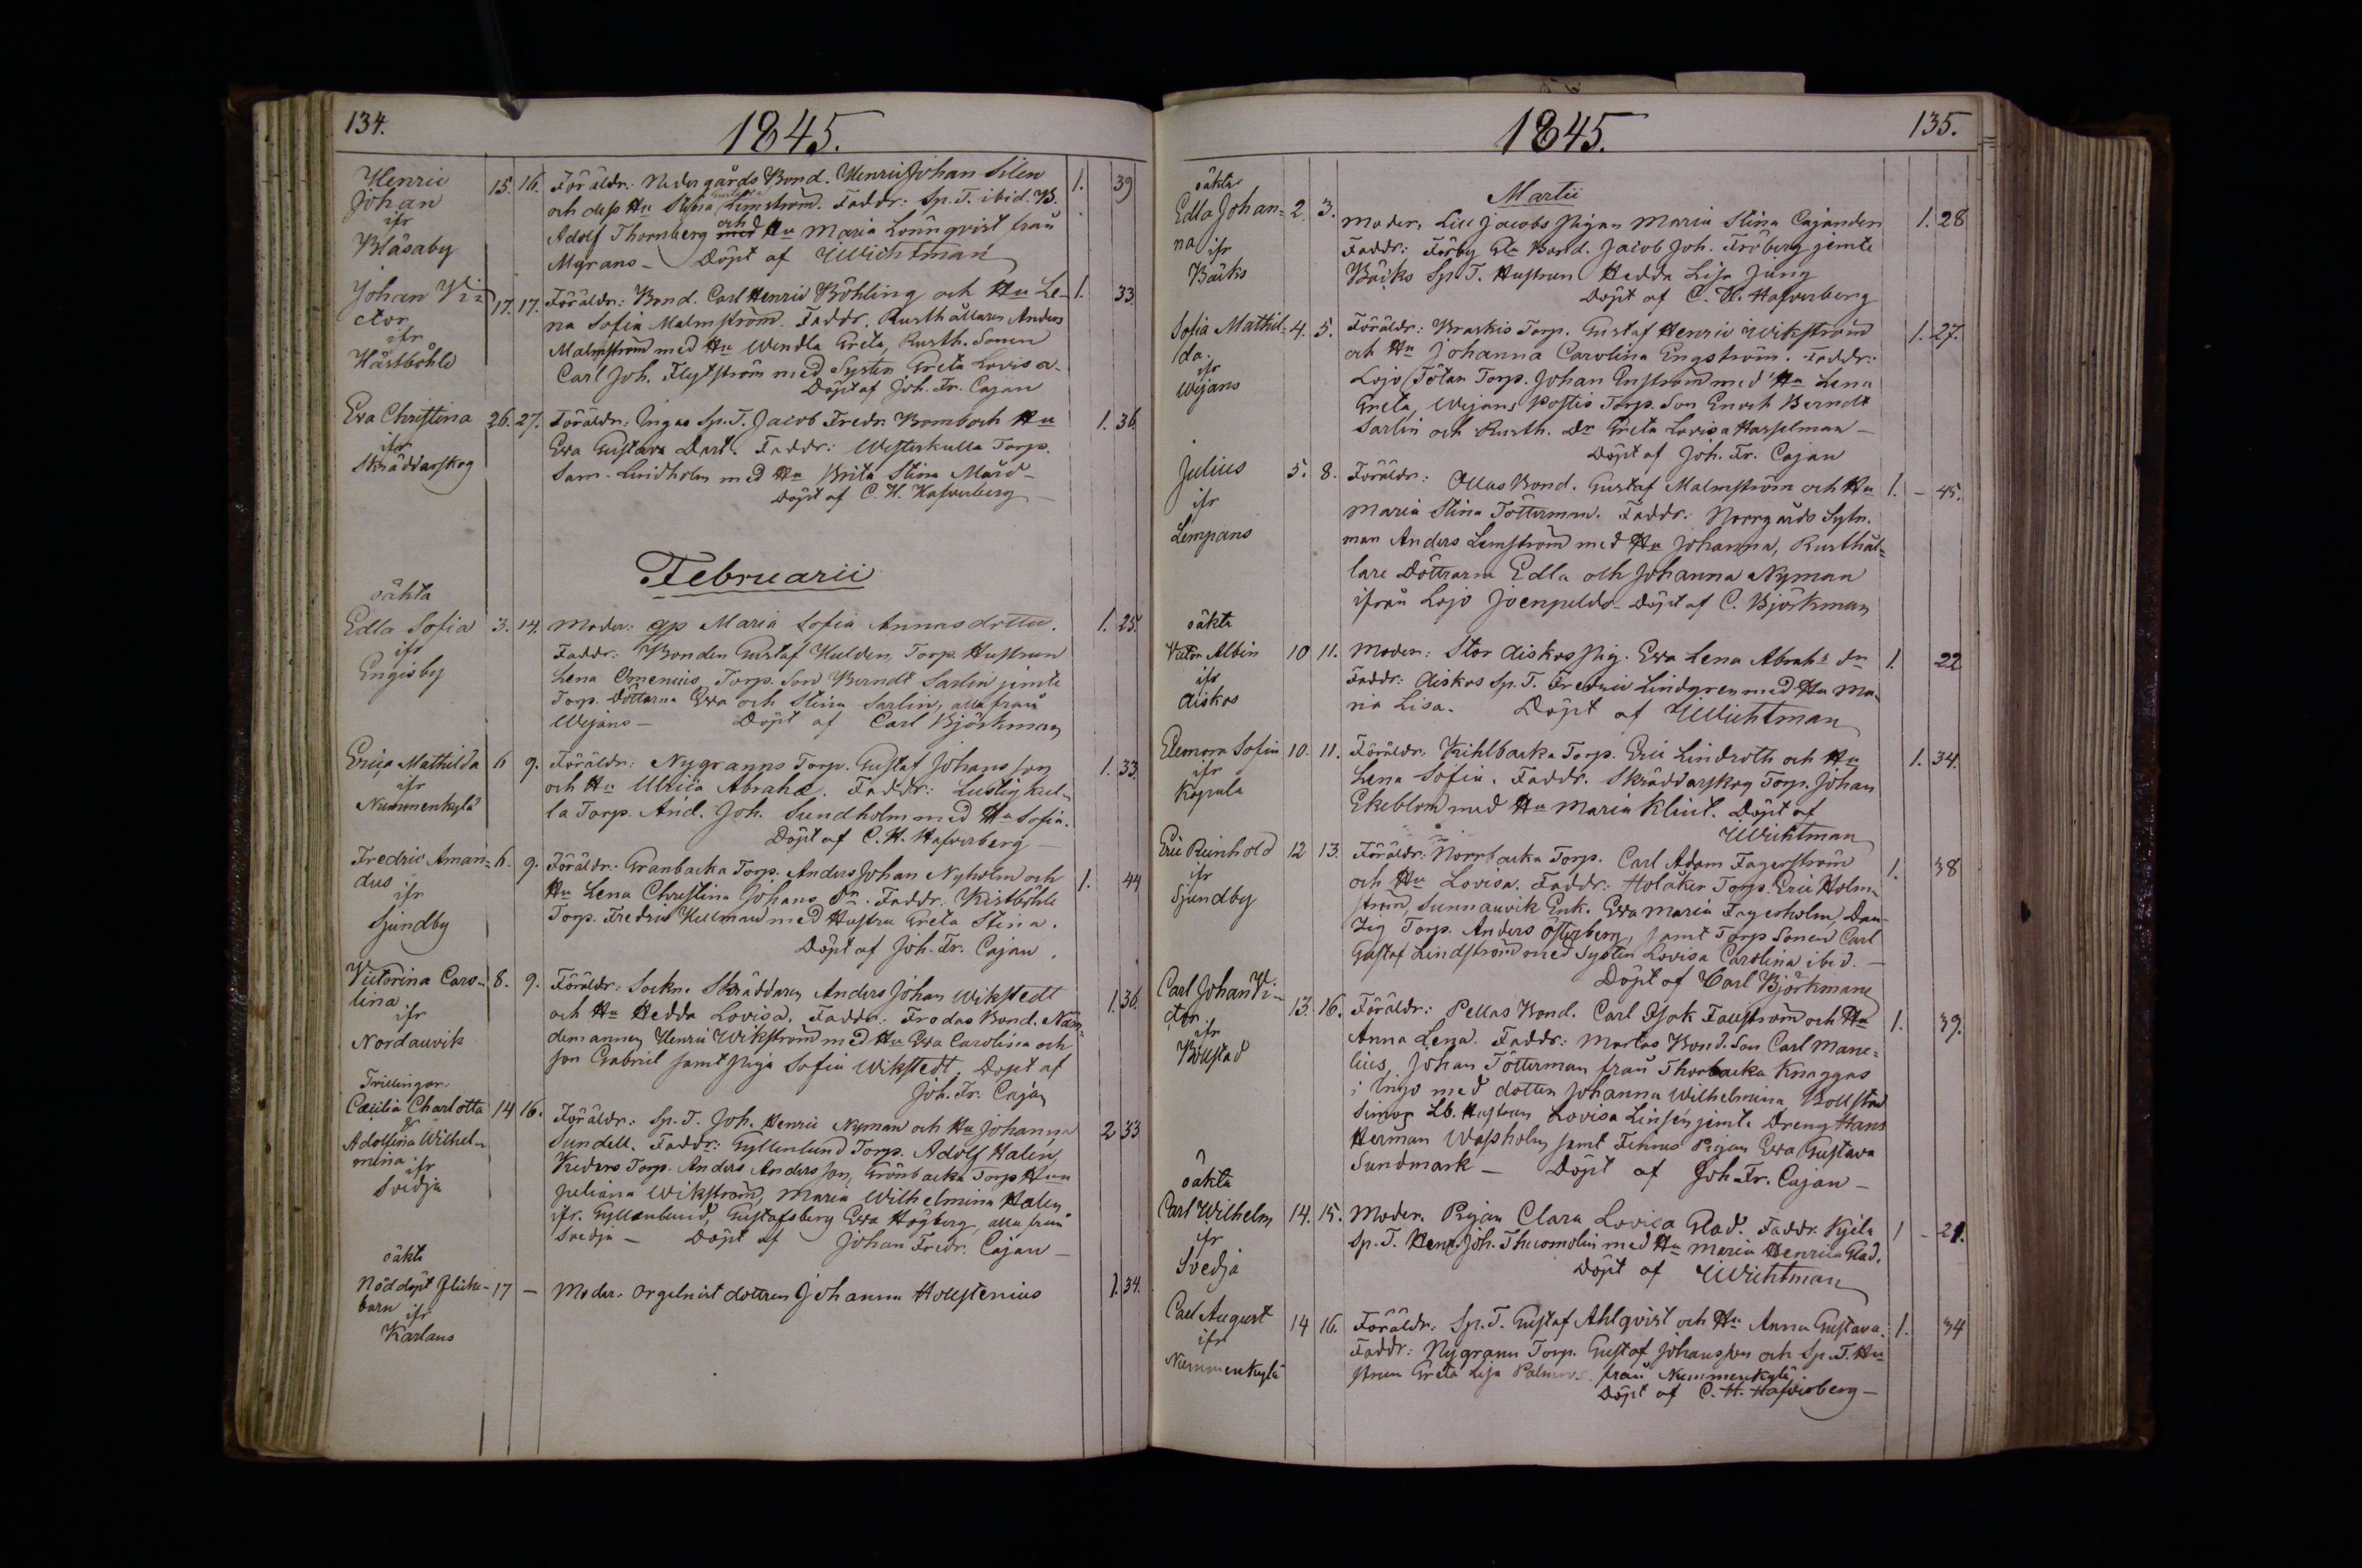 134.
1845.
Henric 15. 16. Föräldr: Nedergårds Bond. Henric Johan Silen 1. 39
Johan och dess Hu Stina Gustava Lemström. Faddr: Sp. T. ibid. B.
ifr Adolf Thornberg med och Hu Maria Lönnqvist från
Blåsaby Myrans - Döpt af Wichtman
Johan Vi= 17. 17. Föräldr: Bond. Carl Henric Böhling och Hu Le- 1. 33.
ctor na Sofia Malmström. Faddr. Rusthållaren Anders
ifr Malmström med Hu Wendla Greta, Rusth. Sonen
Hästböhle Carl Joh. Flytström med Systen Greta Lovisa.
Döpt af Joh. Fr. Cajan
Eva Christina 26. 27. Föräldr: Ingas Sp. T. Jacob Fredr Bomb och Hu 1. 36.
ifr Eva Gustava Dart. Faddr: Westerkulla Torp.
Skräddarskog Sam. Lindholm med Hu Brita Stina Mård -
Döpt af C. H. Hafverberg -
Februarii
oäkta
Edla Sofia 3. 14. Moder: gp Maria Sofia Annasdotter. 1. 25.
ifr Faddr: Bonden Gustaf Hulden, Torp. Hustrun
Engisby Lena Omenius, Torp. Son Berndt Sarlin jemte
Torp. Döttarna Eva och Stina Sarlin, alla från
Wejans - Döpt af Carl Björkman
Erica Mathilda 6 9. Föräldr: Nygranns Torp. Gustaf Johansson 1. 33.
ifr och Hu Ulrica Abrah. Faddr: Lustigkul-
Nummenkylä la Torp. And. Joh. Sundholm med Hu Sofia.
Döpt af C. H. Hafverberg -
Fredric Aman= 6. 9. Föräldr. Granbacka Torp. Anders Johan Nyholm och 1. 44
dus Hu Lena Christina Johans Dr. Faddr: Kistböhle
ifr Torp. Fredric Hellman med Hustru Greta Stina.
Sjundby Döpt af Joh. Fr. Cajan.
Victorina Caro- 8. 9. Föräldr: Sockne Skräddaren Anders Johan Wikstedt 1. 36.
lina och Hu Hedda Lovisa. Faddr: Frodas Bond. Näm-
ifr demannen Henric Wikström med Hu Eva Carolina och
Nordanvik Son Gabriel samt Piga Sofia Wikstedt. Döpt af
Joh. Fr. Cajan
Trillingar:
Cæcilia Charlotta 14 16. Föräldr: Sp. T. Joh. Henric Nyman och Hu Johanna 2 33
& Sundell. Faddr: Gyllenlund Torp. Adolf Halén,
Adolfina Wilhel- Torp. Anders Andersson, Grönbacka Torp Hun
mina Juliana Wikström, Maria Wilhelmina Halen
ifr ifr. Gyllenlund, Gustafsberg Eva Högberg, alla från
Svedja Svedja - Döpt af Johan Fredr. Cajan -
oäkta
Nöddöpt flicke- 17 - Moder. Orgelnist dottren Johanna Hollstenius 1. 34.
barn ifr
Karlans
1845.
135.
Martii
oäkta
Edla Johan= 2. 3. Moder, Lill Jacobs Pigan Maria Stina Cajander 1. 28
na ifr Faddr: Förby Bond. Jacob Joh. Fröberg jemte
Bäcks Bäcks Sp. T. Hustrun Hedda Lisa Jung
Döpt af C. H. Hafverberg
Sofia Mathil- 4. 5. Föräldr: Braskis Torp. Gustaf Henric Wikström 1. 27.
da. och Hu Johanna Carolina Engström. Faddr:
ifr Lojo Tötar Torp. Johan Enström med Hu Lena
Wejans Greta, Wejans Postis Torp. Son Enoch Berndt
Sarlin och Rusth. Dr Greta Lovisa Hasselman -
Döpt af Joh. Fr. Cajan
Julius 5. 8. Föräldr: Ollas Bond. Gustaf Malmström och Hu 1. - 45.
ifr Maria Stina Tötterman. Faddr: Norrgårds Sytn.
Lempans man Anders Lemström med Hu Johanna, Rusthål=
lare Döttrarna Edla och Johanna Nyman
ifrån Lojo Joenpeldo - Döpt af C. Björkman
oäkta
Victor Albin 10 11. Moder: Stor Aiskos Pig. Eva Lena Abrahs dr 1. 22
ifr Faddr: Aiskos Sp. T. Fredric Lindgren med Hu Ma-
Aiskos ria Lisa. Döpt af Wichtman
Eleonora Sofia 10. 11. Föräldr: Kihlbacka Torp. Eric Lindroth och Hu 1. 34.
ifr Lena Sofia. Faddr. Skräddarskog Torp. Johan
Kopula Ekeblom med Hu Maria Klint. Döpt af
Wichtman
Eric Reinhold 12 13. Föräldr: Norrbacka Torp. Carl Adam Fagerström 1. 38
ifr och Hu Lovisa. Faddr: Holåker Torp. Eric Holm-
Sjundby ström, Sunnanvik Enk. Eva Maria Fagerholm, Dan-
Torp. Anders Österberg, samt Torp Sonen Carl
Gustaf Lindström med Systen Lovisa Carolina ibid. -
Döpt af Carl Björkman
Carl Johan Vi- 13. 16. Föräldr: Pellas Bond. Carl Isak Fallström och Hu 1. 39.
ctor. Anna Lena. Faddr: Martas Bond. Son Carl Mane=
ifr lius, Johan Tötterman från Thorbacka Knaggas
Böllstad i Ingo med dotter Johanna Wilhelmina Bollstad
Simos Lb. Hustrun Lovisa Linsén jemte Dreng Hans
Herman Wassholm samt Finnas Pigan Eva Gustava
Sundmark - Döpt af Joh. Fr. Cajan -
oäkta
Carl Wilhelm 14. 15. Moder. Pigan Clara Lovisa Glad. Faddr. Kjela 1 - 21.
ifr Sp. T. Henr. Joh. Thuomolin med Hu Maria Henrica Glad.
Svedja Döpt af Wichtman
Carl August 14 16. Föräldr: Sp. T. Gustaf Ahlqvist och Hu Anna Gustava. 1. 34
ifr Faddr: Nygrann Torp. Gustaf Johansson och Sp. T. Hu-
Nummenkylä strun Greta Lisa Palmros från Nummenkylä
Döpt af C. H. Hafverberg -